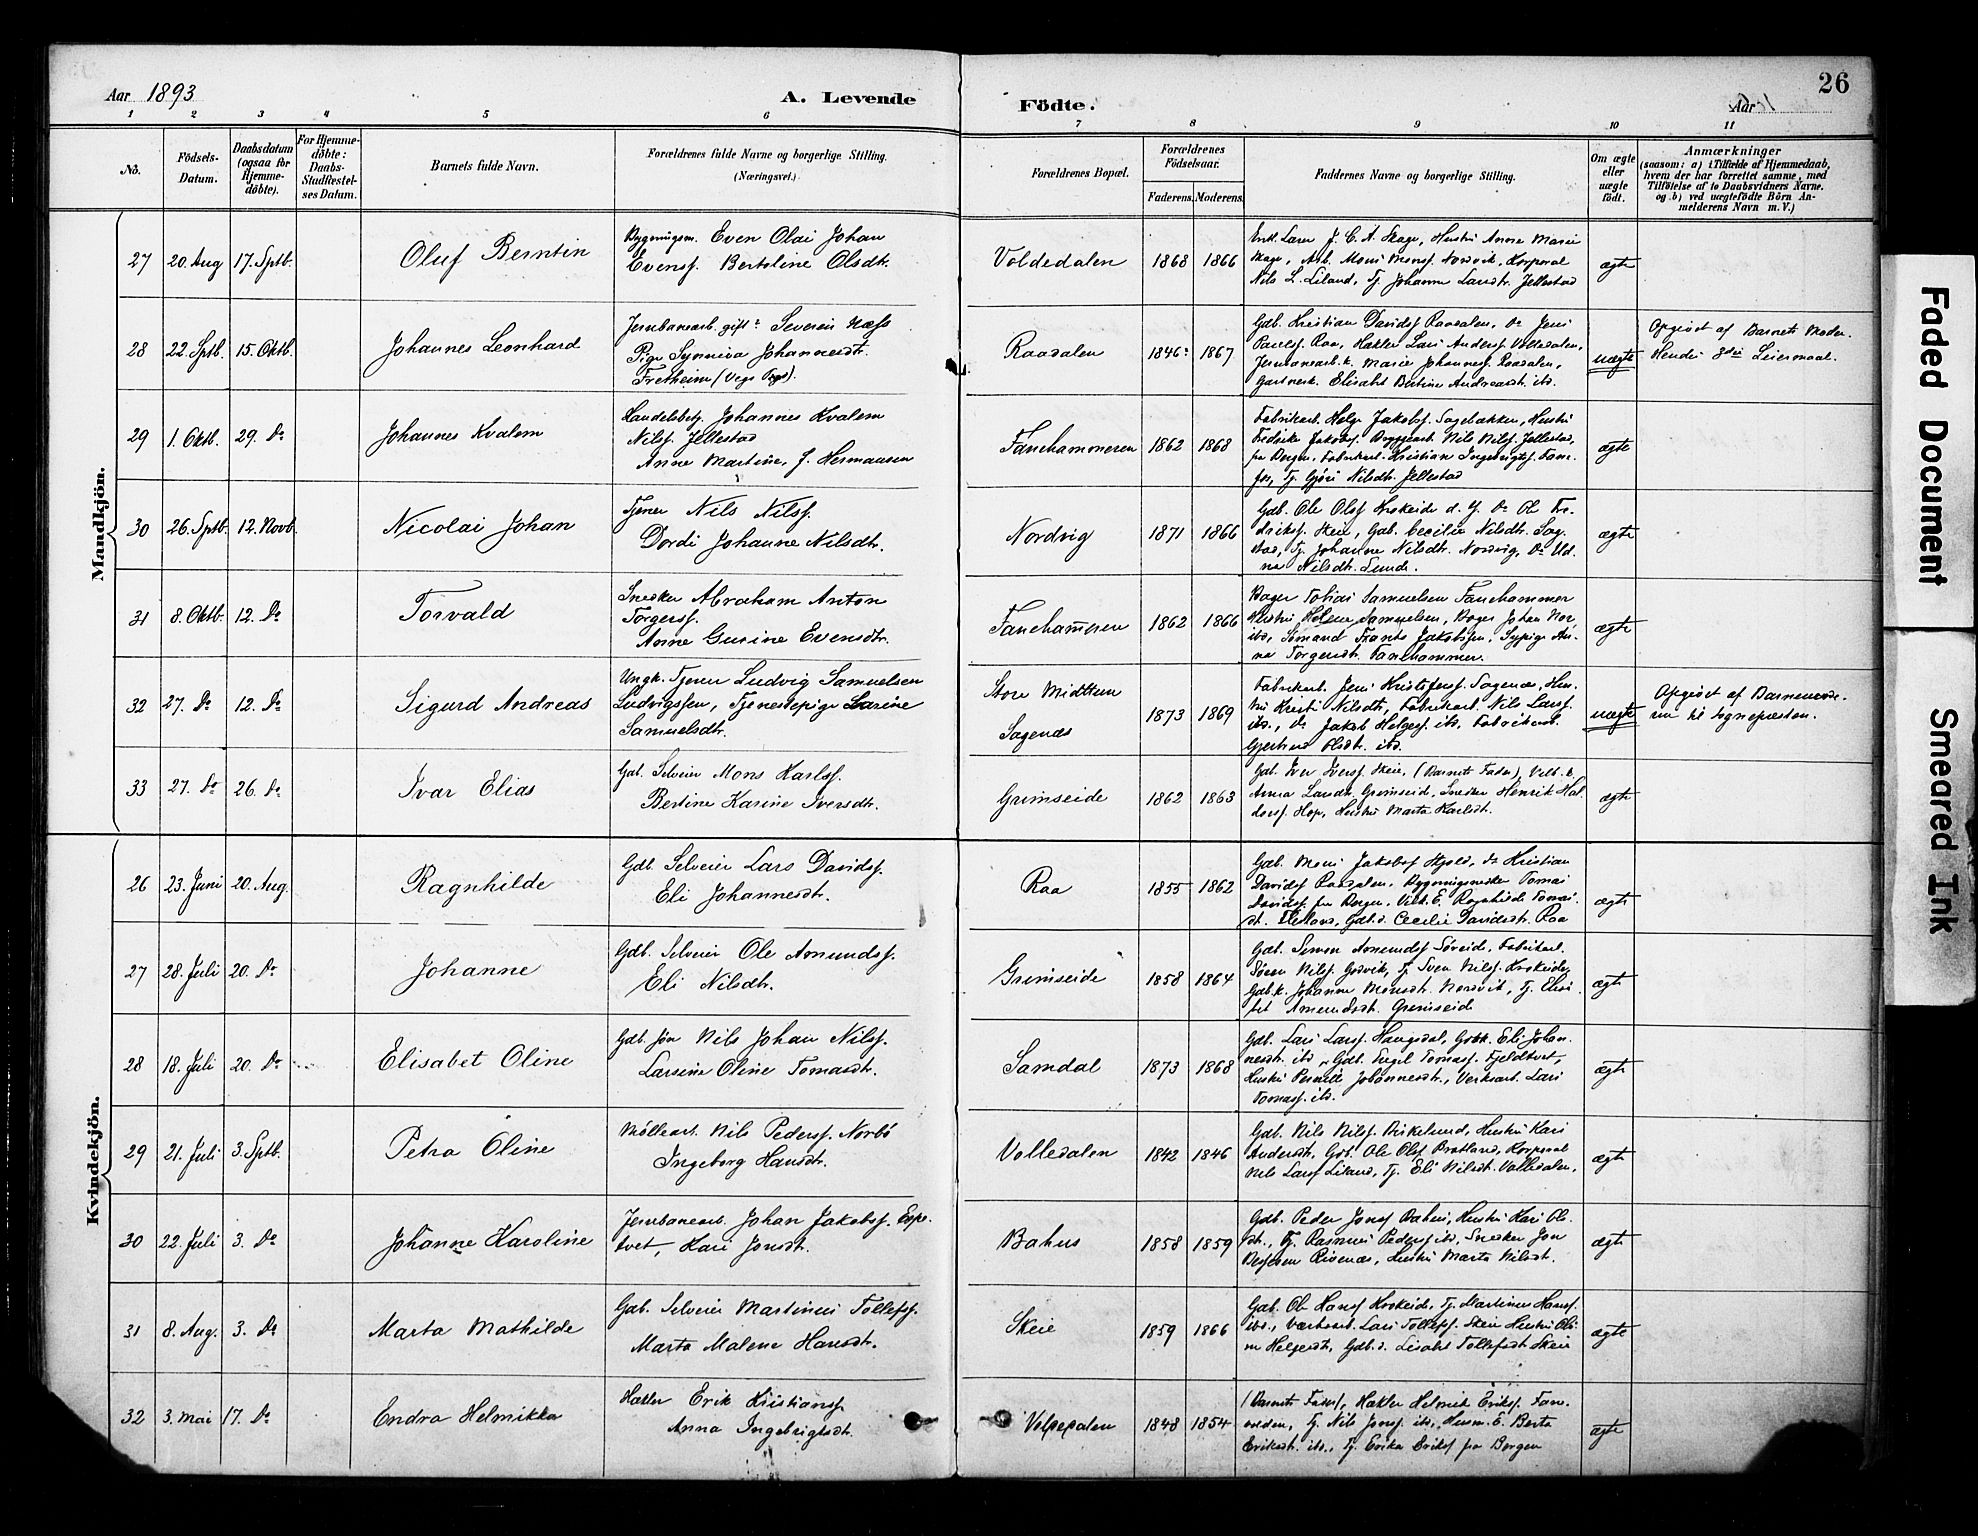 26
Aar 1893
A. Levende
Födte.
Aar
1 2 3 4 5 6 7 8 9 10 11
No.
Födsels-Datum.
Daabsdatum (ogsaa för Hjemme-döbte).
For Hjemme-döbte: Daabs-Stadfæstel-ses Datum.
Barnets fulde Navn.
Forældrenes fulde Navne og borgerlige Stilling. (Næringsvei.)
Forældrenes Bopæl.
Forældrenes Födselsaar.
Faderens. Moderens.
Faddernes Navne og borgerlige Stilling.
Om ægte eller uægte födt.
Anmærkninger
(saasom: a) i Tilfælde af Hjemmedaab, hvem der har forrettet samme, med Tilföielse af to Daabsvidners Navne. og b) ved uægtefödte Börn An-melderens Navn m. V.)
Mandkjön.
27 20. Aug 17. Sptb. Oluf Berntin
Bygningsm. Even Olai Johan
Evensf. Bertoline Olsdtr.
Voldedalen 1868 1866
Enkl. Lærer J. C. A. Skage, Hustru Anna Marie
Skage, Arb. Mons Monsf. Nordvik, Korporal
Nils L. Liland, Tj. Johanna Larsdtr. Jellestad
ægte
28 22. Sptb. 15. Oktb. Johannes Leonhard
Jernbanearb. gift Severin Næss
Pige Synneva Johannesdtr.
Fretheim
Raadalen 1846 1867
Gdb. Kristian Davidsf Raadalen, Do Jens
Paulsf. Raa, Hakler Lars Andersf. Volledalen,
Jernbanearb.k. Marie Johannesf. Raadalen,
Gartnerk. Elisabet Bertine Andreasdtr. ibd.
uægte
Opgivet af Barnets Moder.
Hendes 3die Leiermaal.
29 1. Oktb. 29. Do Johannes Kvalem
Handelsbetj. Johannes Kvalem
Nilsf. Jellestad
Anne Martine, f. Hermansen
Fanehammeren 1862 1868
Fabrikarb. Helge Jakobsf. Sagebakken, Hustru
Fredrikke Jakobsf. Bryggearb. Nils Nilsf. Jellestad,
fra Bergen, Fabrikarb. Kristian Ingebrigtsf. Fane-
fos, Tj. Gjöri Nilsdtr. Jellestad
ægte
30 26. Sptb. 12. Novb. Nicolai Johan
Tjener Nils Nilsf.
Dordi Johanne Nilsdtr.
Nordvig 1871 1866
Gdb. Ole Olsf Krokeide d. Y. Do Ole Fre-
driksf. Skeie, Gdb. Cecilie Nilsdtr. Sag-
stad, Tj. Johanne Nilsdtr. Nordvig, Do
Nilsdtr. Lunde.
ægte
31 8. Oktb. 12. Do Torvald
Snedker Abraham Anton
Torgersf.
Anne Gurine Evensdtr.
Fanehammeren 1862 1866
Bager Tobias Samuelsen Fanehammer
Hustru Helene Samuelsen, Bager Johan
ibd, Sömand Frants Jakobsen, Sypige An-
na Torgersdtr. Fanehammer.
ægte
32 27. Do 12. Do Sigurd Andreas
Ungk. Tjener Ludvig Samuelsen
Ludvigssen, Tjenestepige Larine
Samuelsdtr.
Store Midttun
Sagenæs
1873 1869
Fabrikarb. Jens Kristofersf. Sagenæs, Hus-
tru Kristi Nilsdtr., Fabrikarb. Nils Larsf.
ibd., Do Jakob Helgesf. ibd. Fabrikarb.
Gjertrud Olsdtr. ibd.
uægte
Opgivet af Barnemode-
ren til Sognepresten.
33 27. Do 26. Do Ivar Elias
Gdb. Selveier Mons Karlsf.
Bertine Karine Iversdtr.
Grimseide 1862 1863
Gdb. Iver Iversf. Skeie, (Barnets Fader),
Anna Larsdtr. Grimseid, Snedker Henrik Hal-
dorsf. Hop, Hustru Marta Karlsdtr.
ægte
Kvindekjön.
26 23. Juni 20. Aug. Ragnhilde
Gdb. Selveier Lars Davidsf.
Eli Johannesdtr.
Raa 1855 1862
Gdb. Mons Jakobsf Hjold, do Kristian
Davidsf Raadalen, Bygningssnedker Tomas
Davidsf. fra Bergen, Ragnhilde Tomas-
dtr., Gdb.d. Cecilie Davidsdtr. Raa
ægte
27 28. Juli 20. Do Johanne
Gdb. Selveier Ole Amundsf.
Eli Nilsdtr.
Grimseide 1858 1864
Gdb. Simon Amundsf Söreide, Fabrikarb.
Sören Nilsf. Godvik, Tj. Sven Nilsf. Krokeide,
Gdb.k. Johanne Monsdtr. Nordvik, Tj. Elisa-
bet Amundsdtr. Grimseide
ægte
28 18. Juli 20. Do Elisabet Oline
Gdb. Sön Nils Johan Nilsf.
Larsine Oline Tomasdtr.
Samdal 1873 1868
Gdb. Lars Larsf. Haugsdal, Gdbk. Eli Johan-
nesdtr. ibd., Gdb. Engel Tomasf. Fjeldtvet,
Hustru Pernille Johannesdtr., Verksarb. Lars
Tomasf. ibd.
ægte
29 21. Juli 3. Sptb. Petra Oline
Möllearb. Nils Pedersf. Norbö
Ingeborg Hansdtr.
Volledalen 1842 1846
Gdb. Nils Nilsf. Birkelund, Hustru Kari
Andersdtr., Gdb. Ole Olsf Bratland, Korporal
Nils Larsf Liland, Tj. Eli Nilsdtr. Volledalen.
ægte
30 22. Juli 3. Do Johanne Karoline
Jernbanearb. Johan Jakobsf. Espe-
tvet, Kari Jonsdtr.
Bahus 1858 1859
Gdb. Peder Jonsf Bahus, Hustru Kari Ols-
dtr., Tj. Rasmus Pedersf ibd, Snedker Jon
Rivenæs, Hustru Marta Nilsdtr.
ægte
31 8. Aug. 3. Do Marta Mathilde
Gdb. Selveier Martinus Tollefsf.
Marta Malene Hansdtr.
Skeie 1859 1866
Gdb. Ole Hansf Krokeide, Tj. Martinus Hansf.
ibd., Værksarb. Lars Tollefsf. Skeie Hustru Oli-
ne Helgesdtr., Gdb.d. Lisabet Tollefsdtr Skeie
ægte
32 3. Mai 17. Do Endra Helmikka
Hakler Erik Kristiansf
Anna Ingebrigtsdtr.
Volledalen 1848 1854
(Barnets Fader), Hakler Helmik Eriksf. Fane-
veden, Tj. Nils Jonsf. ibd, Husm. E. Berta
Eriksdtr. ibd., Tj. Erika Eriksf fra Bergen
ægte
Faded Document
Smeared Ink